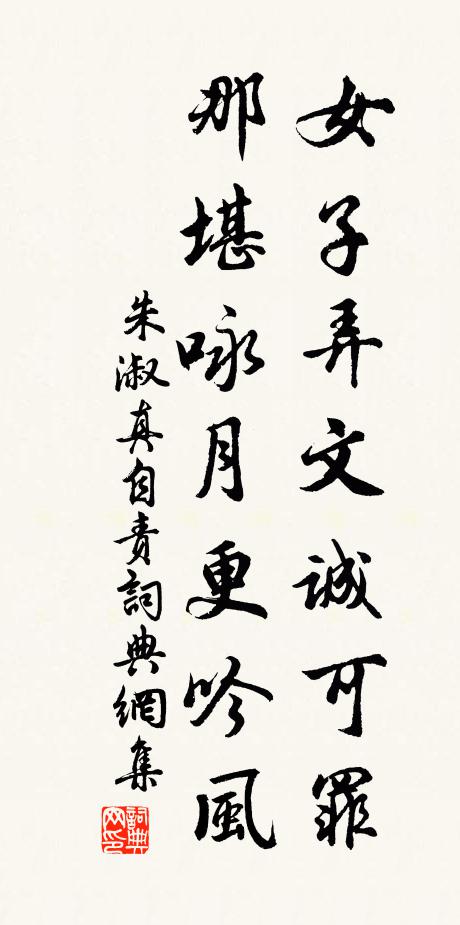 女子弄文誠可罪
那堪咏月更吟風
朱淑真自責詞典網集
詞典網印